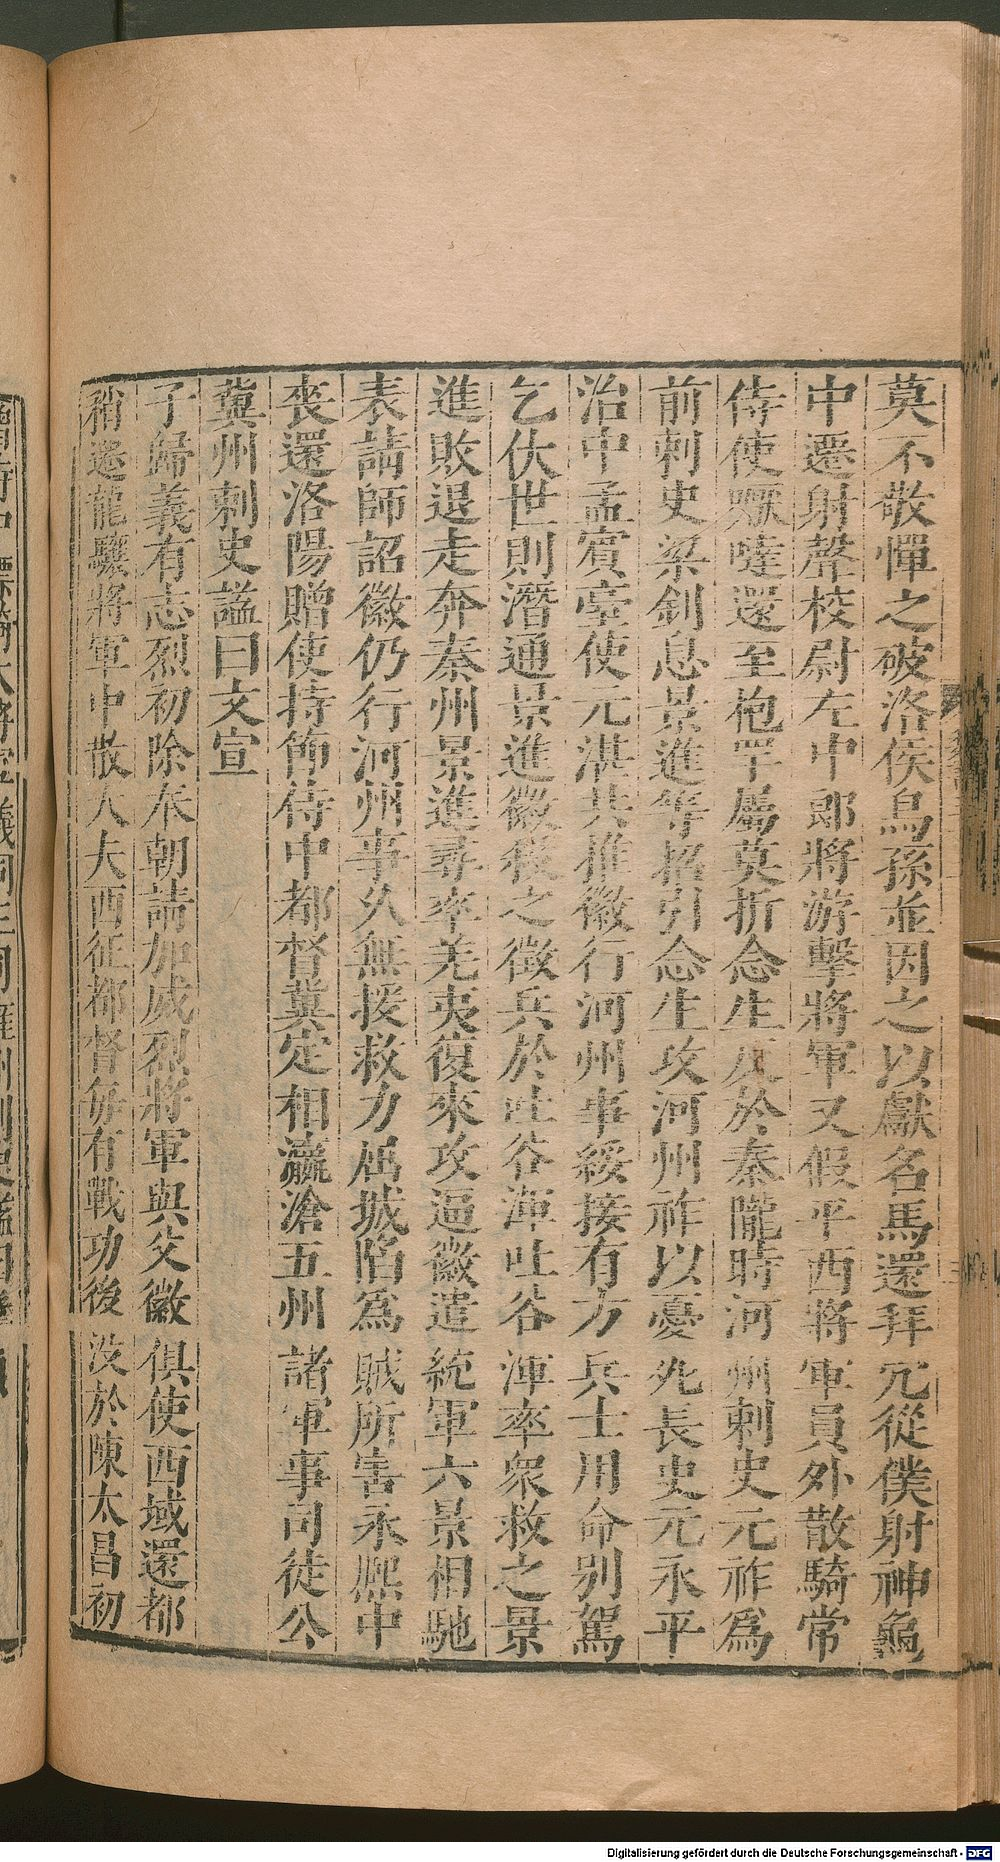 莫不敬憚之破洛侯烏孫並因之以獻名馬還拜冗從僕射神龜
中遷射聲校尉左中郎將游擊將軍又假平西將軍員外散騎常
侍使嚈噠還至枹罕屬莫折念生反於秦隴時河州刺史元祚爲
前刺史梁釗息景進等招引念生攻河州祚以憂死長史元永平
治中孟賓臺使元湛共推徽行河州事綏接有方兵士用命別駕
乞伏世則潛通景進徽殺之徵兵於吐谷渾吐谷渾率衆救之景
進敗退走奔秦州景進尋率羌夷復來攻逼徽遣統軍六景相馳
表請師詔徽仍行河州事久無援救力屈城陷爲賊所害永熈中
喪還洛陽贈使持節侍中都督冀定相瀛滄五州諸軍事司徒公
冀州刺史謚曰文宣
子歸義有志烈初除奉朝請加威烈將軍與父徽俱使西域還都
稍遷龍驤將軍中散大夫西征都督每有戰功後没於陳太昌初
Digitalisierung gefördert durch die Deutsche Forschungsgemeinschaft - DFG